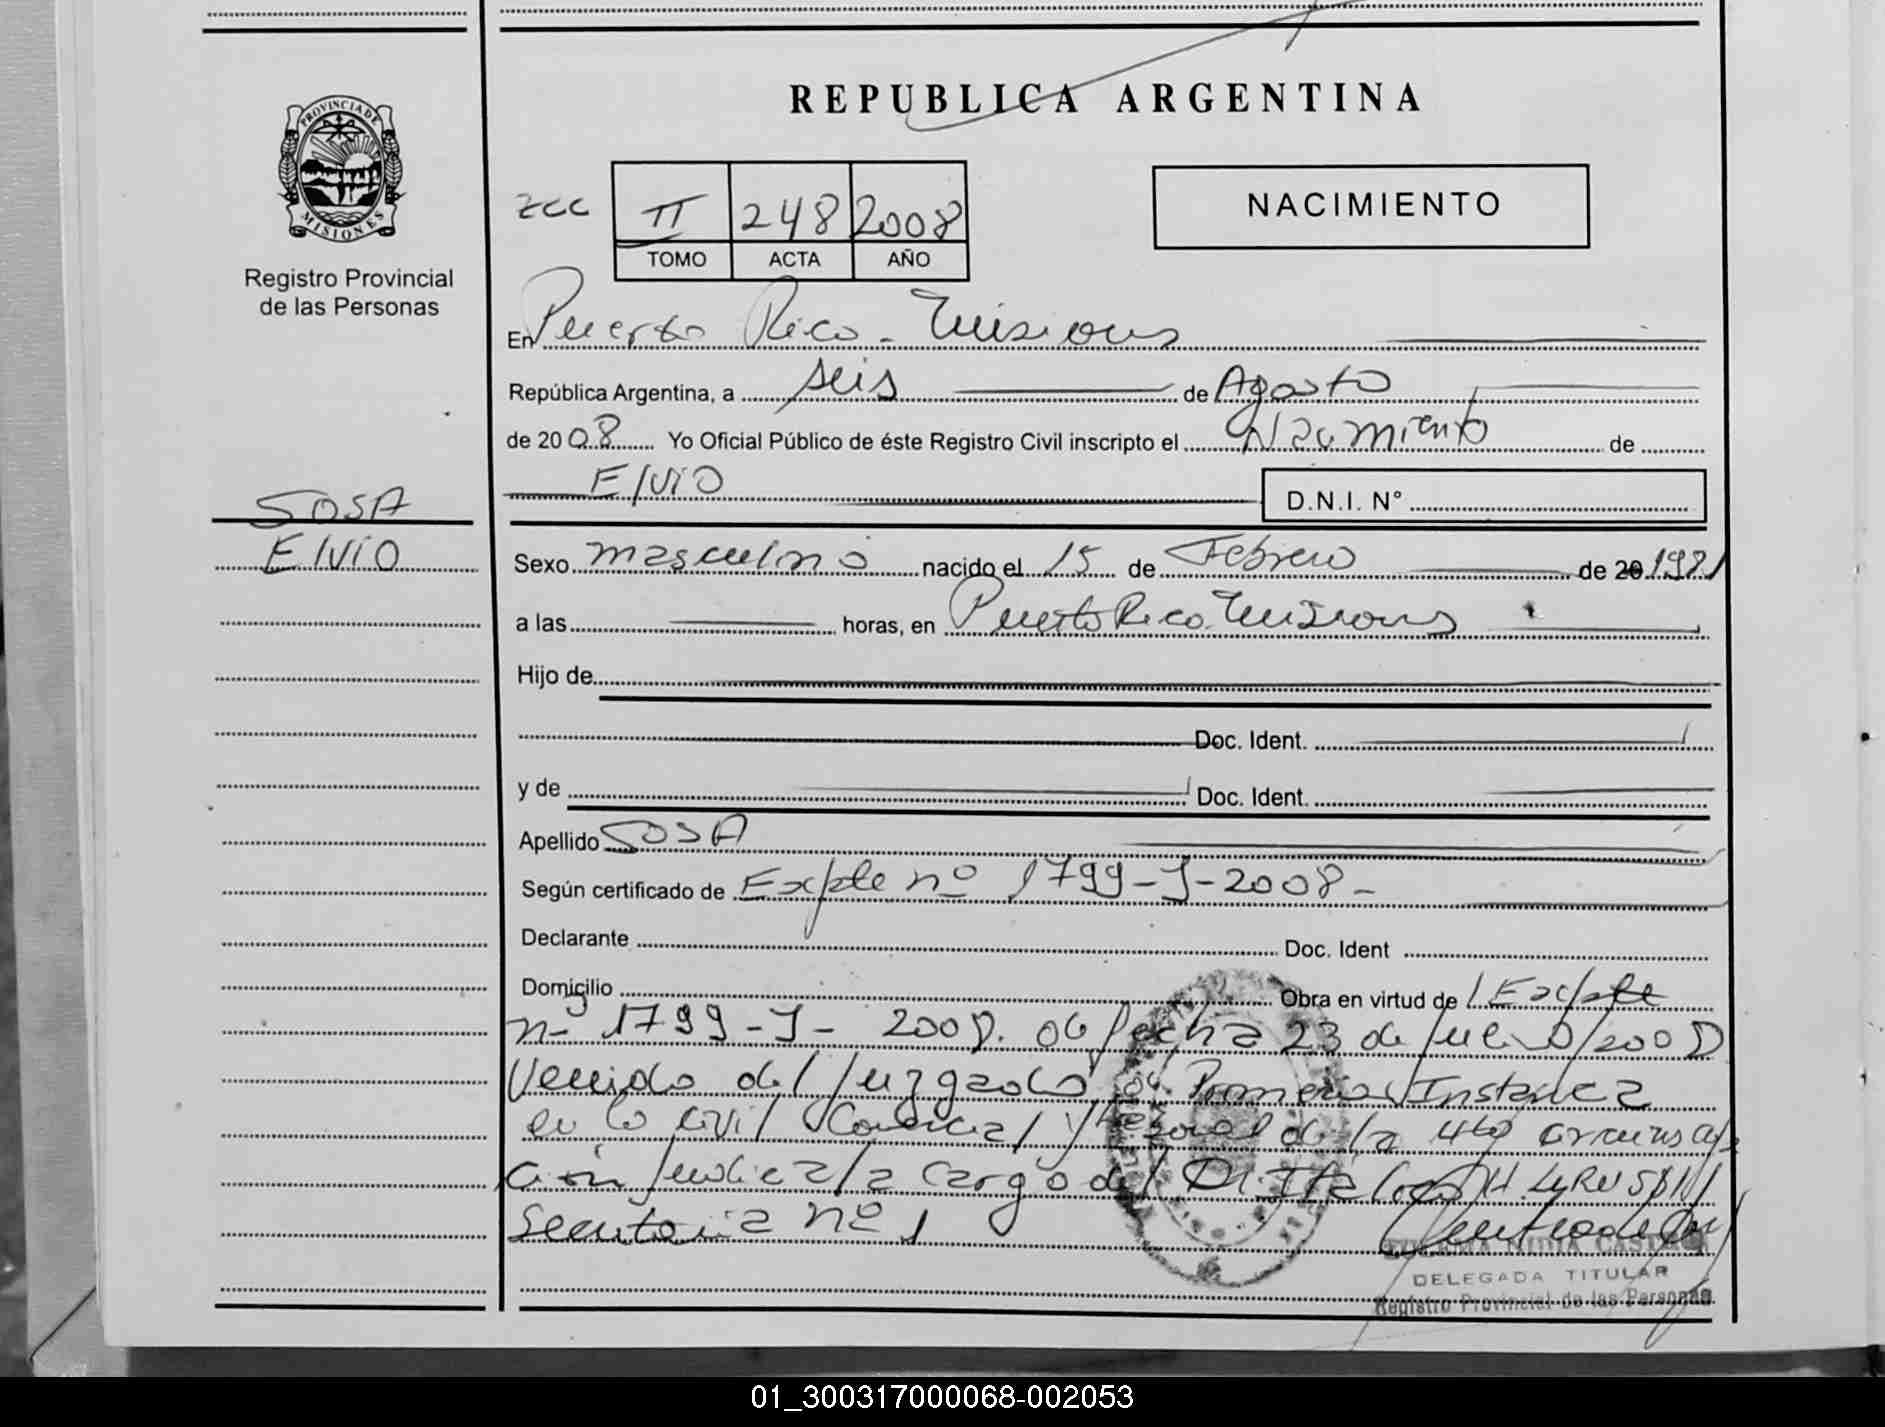 REPUBLICA ARGENTINA
PROVINCIA DE
MISIONES
Registro Provincial
de las Personas
II 248 2008
TOMO ACTA AÑO
NACIMIENTO
En Puerto Rico - Misiones
República Argentina, a seis de Agosto
de 2008 Yo Oficial Público de éste Registro Civil inscripto el Nacimiento de
Elvio D.N.I. N°
SOSA
Elvio
Sexo masculino nacido el 15 de Febrero de 20 1981
a las horas, en Puerto Rico Misiones
Hijo de
Doc. Ident.
y de Doc. Ident.
Apellido SOSA
Según certificado de Expte nº 1799-J-2008-
Declarante Doc. Ident
Domicilio Obra en virtud de Expte
nº 1799-J-2008. de fecha 23 de Julio/2008
Venido del Juzgado de Primera Instancia
en lo Civil Comercial y Laboral de la 4ta circunscrip
ción Judicial a cargo del Dr.
Secretaria nº 1
NIDIA CASTRO
DELEGADA TITULAR
Registro Provincial de las Personas
01_300317000068-002053